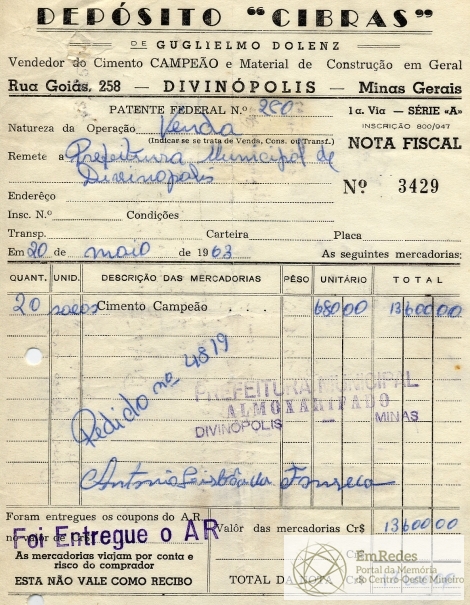 DEPÓSITO "CIBRAS"
DE GUGLIELMO DOLENZ
Vendedor do Cimento CAMPEÃO e Material de Construção em Geral
Rua Goiás, 258 — DIVINÓPOLIS — Minas Gerais
PATENTE FEDERAL N.º 280 1a. Via — SÉRIE «A»
INSCRIÇÃO 800/947
Natureza da Operação Venda
(Indicar se se trata de Venda, Cons. ou Transf.)
NOTA FISCAL
Remete a Prefeitura Municipal de
Divinopolis
Nº 3429
Endereço
Insc. N.º Condições
Transp. Carteira Placa
Em 20 de maio de 1963 As seguintes mercadorias:
QUANT. UNID. DESCRIÇÃO DAS MERCADORIAS PÊSO UNITÁRIO TOTAL
20 sacos Cimento Campeão 680 00 13600 00
Pedido nº 4819
PREFEITURA MUNICIPAL
ALMOXARIFADO
DIVINÓPOLIS — MINAS
Antonio Lisbôa da Fonseca
Foram entregues os coupons do A.R
no valor de Cr$
Foi Entregue o AR
Valor das mercadorias Cr$ 13600 00
As mercadorias viajam por conta e
risco do comprador
ESTA NÃO VALE COMO RECIBO
TOTAL DA NOTA Cr$
EmRedes
Portal da Memória
do Centro-Oeste Mineiro